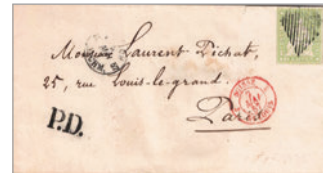 Monsieur Laurent Pichat,
25, rue Louis-le-grand.
Paris
P.D.